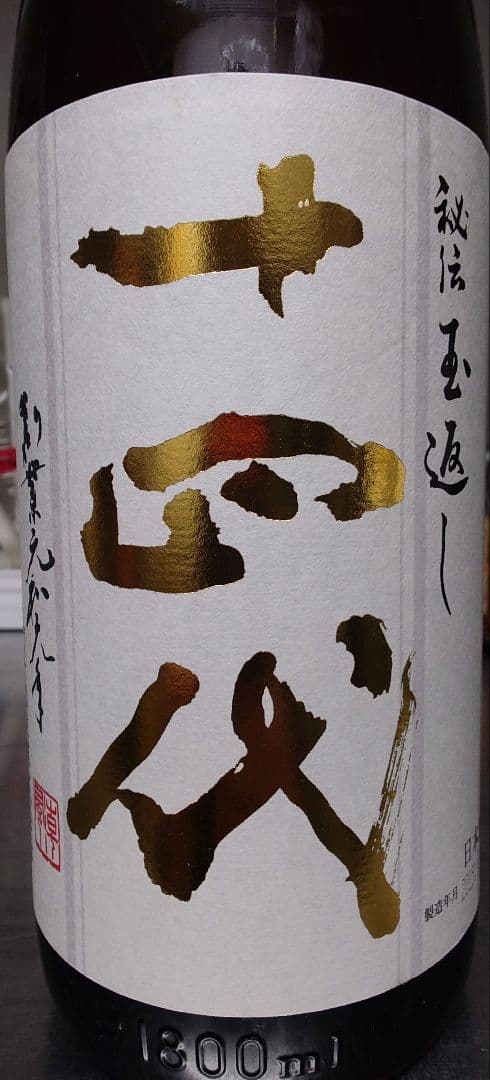 秘伝玉返し
十四代
創業元和元年
日本
製造年月
1800ml